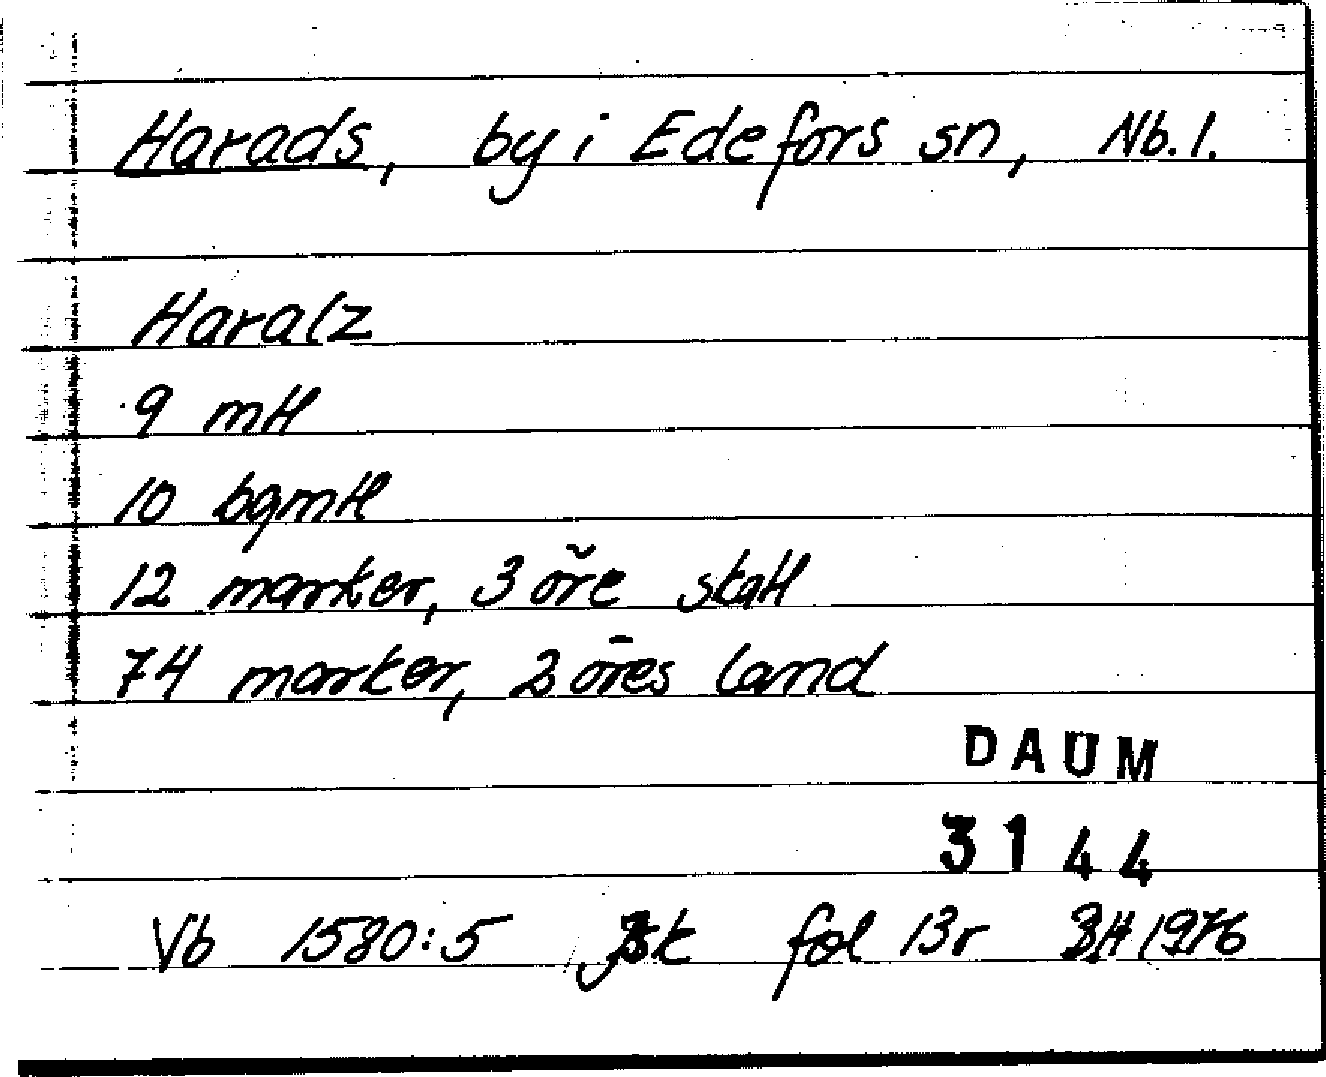 Harads, by i Edefors sn, Nb. l.
Haralz
9 mtl
10 bgmtl
12 marker, 3 öre skatt
74 marker, 2 öres land
DAUM
3144
Vb 1580:5 fol 13r BH 1976